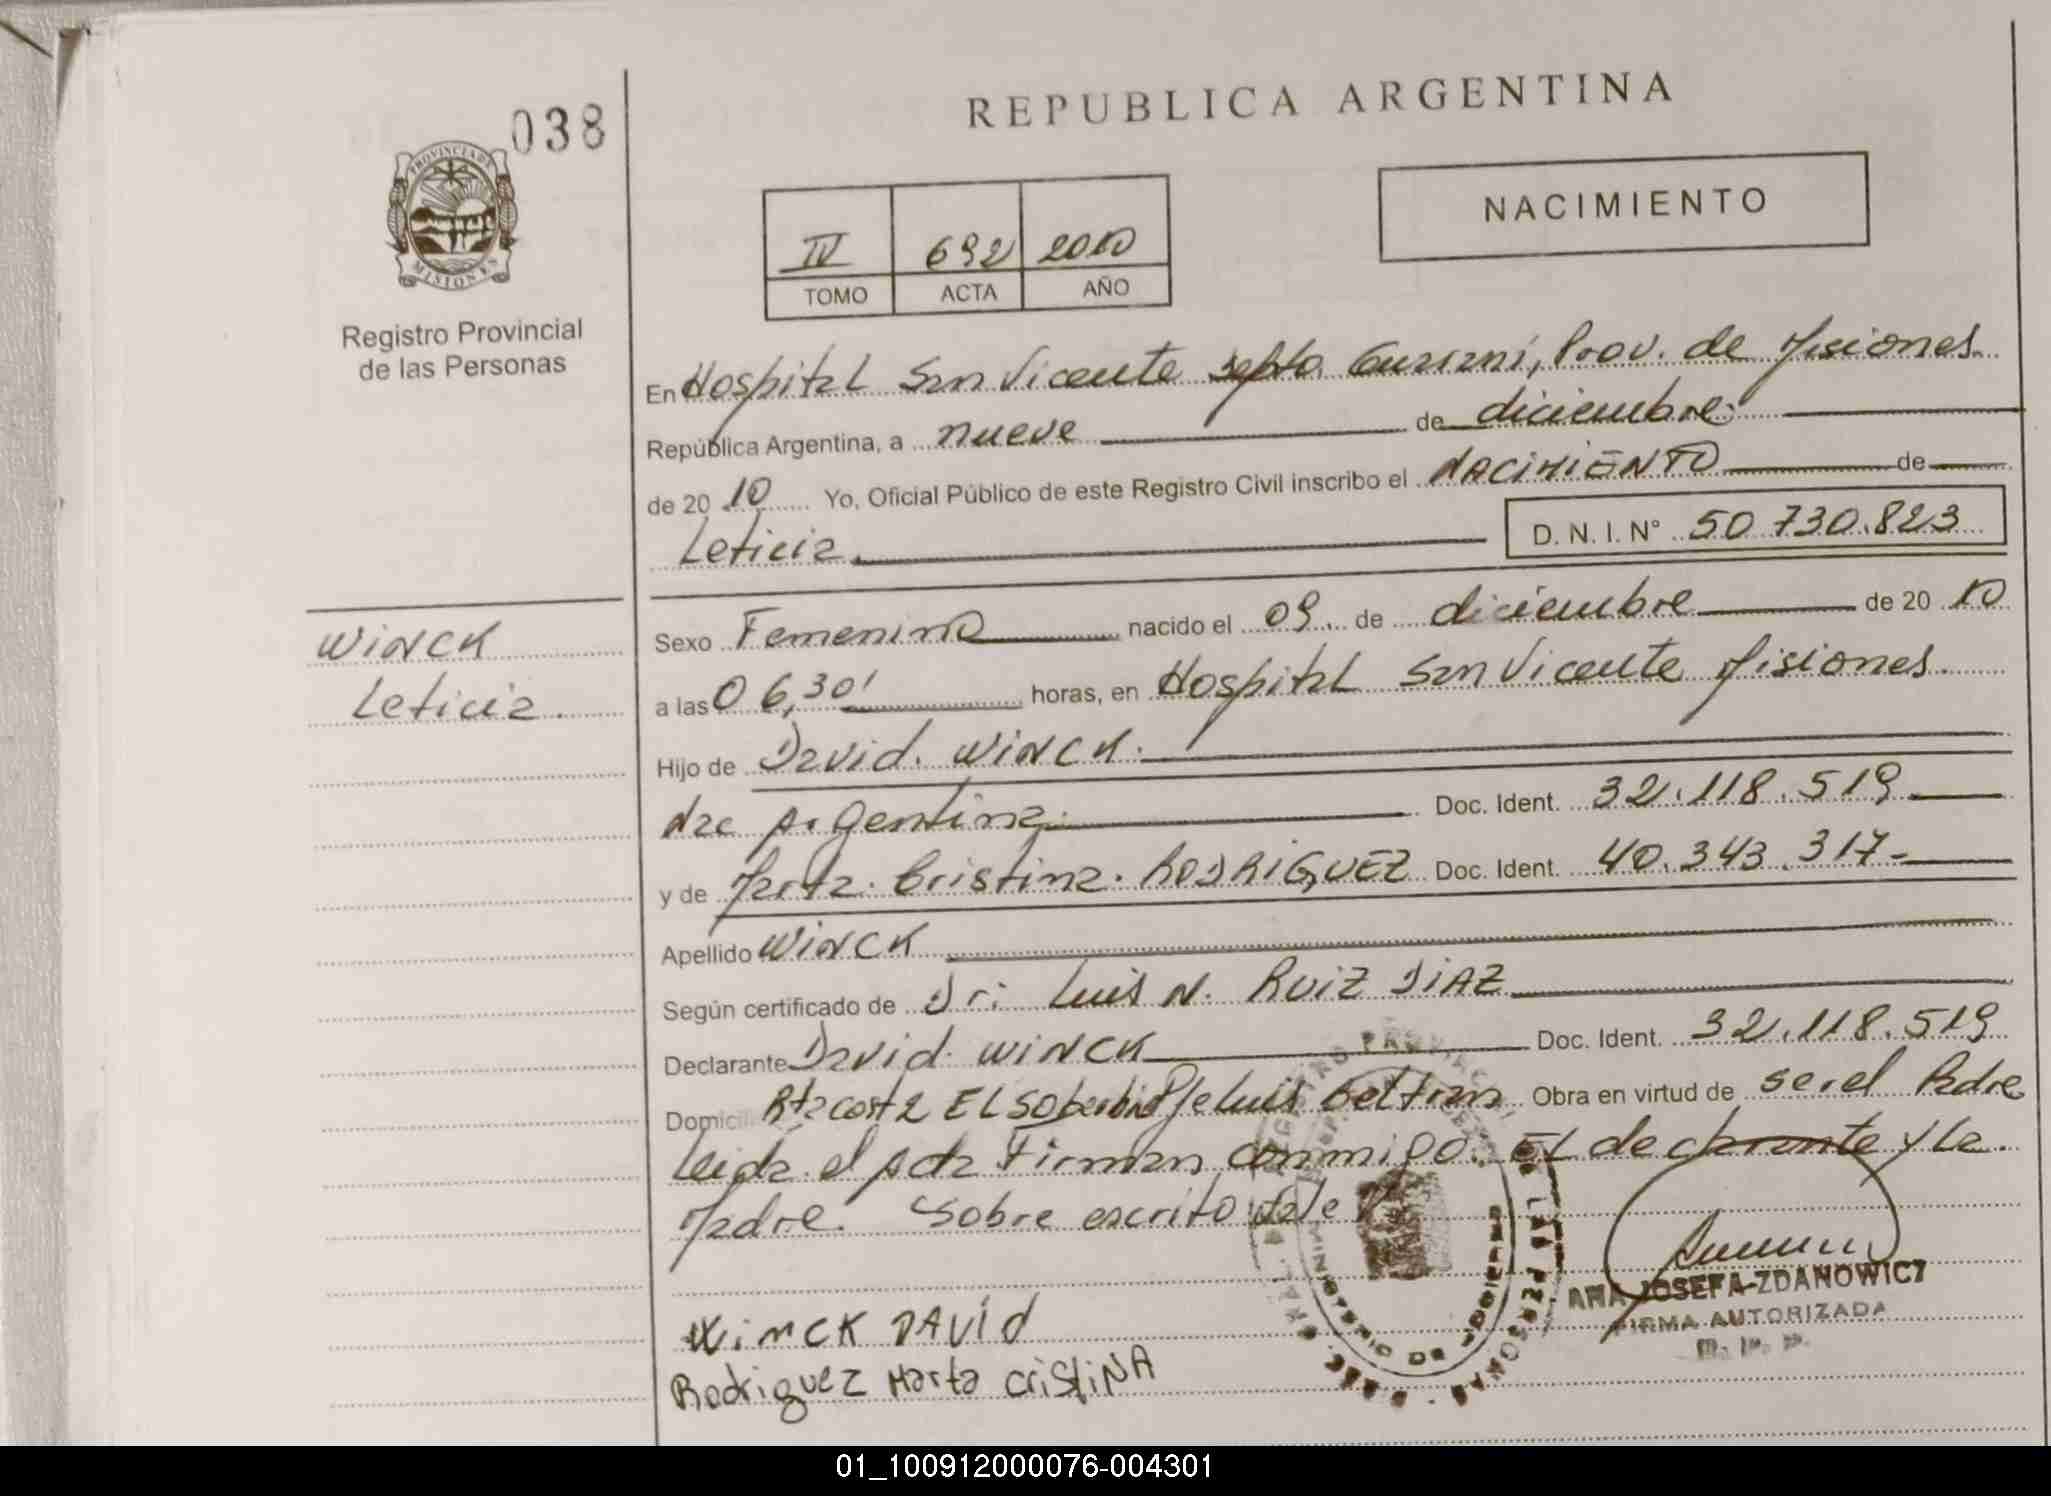 REPUBLICA ARGENTINA
038
PROVINCIA DE
MISIONES
Registro Provincial
de las Personas
NACIMIENTO
IV 692 2010
TOMO ACTA AÑO
En Hospital San Vicente Depto. Guarani, Prov. de Misiones
República Argentina, a nueve de diciembre
de 20 10 Yo, Oficial Público de este Registro Civil inscribo el NACIMIENTO de
Leticia. D. N. I. N° 50.730.823
WINCK
Leticia.
Sexo Femenino nacido el 09. de diciembre de 20 10
a las 06,30' horas, en Hospital San Vicente Misiones.
Hijo de David. WINCK.
Nac Argentina. Doc. Ident. 32.118.519
y de Marta. Cristina. RODRIGUEZ Doc. Ident. 40.343.317-
Apellido WINCK
Según certificado de Dr: Luis N. RUIZ DIAZ
Declarante David. WINCK Doc. Ident. 32.118.519
Domicil Rta costa EL Soberbio Pje Luis Beltran Obra en virtud de ser el Padre
Leida el Acta Firman conmigo. EL declarante y La
Madre. Sobre escrito: Vale
WiNCK DAViD
Rodriguez Marta CRiSTiNA
MINISTERIO DE GOBIERNO
ANA JOSEFA ZDANOWICZ
FIRMA AUTORIZADA
01_100912000076-004301